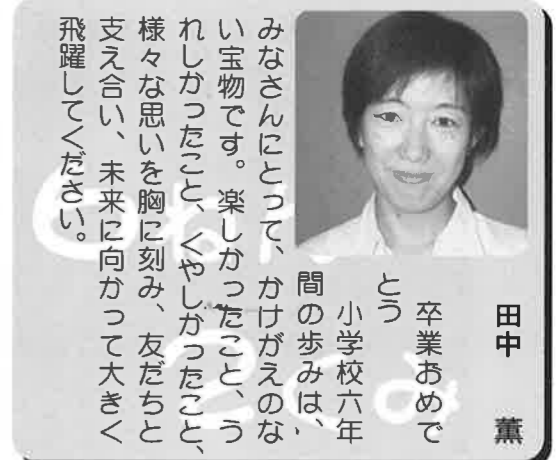 田中 薫
卒業おめで
とう
小学校六年
間の歩みは、
みなさんにとって、かけがえのな
い宝物です。楽しかったこと、う
れしかったこと、くやしかったこと、
様々な思いを胸に刻み、友だちと
支え合い、未来に向かって大きく
飛躍してください。
2くみ